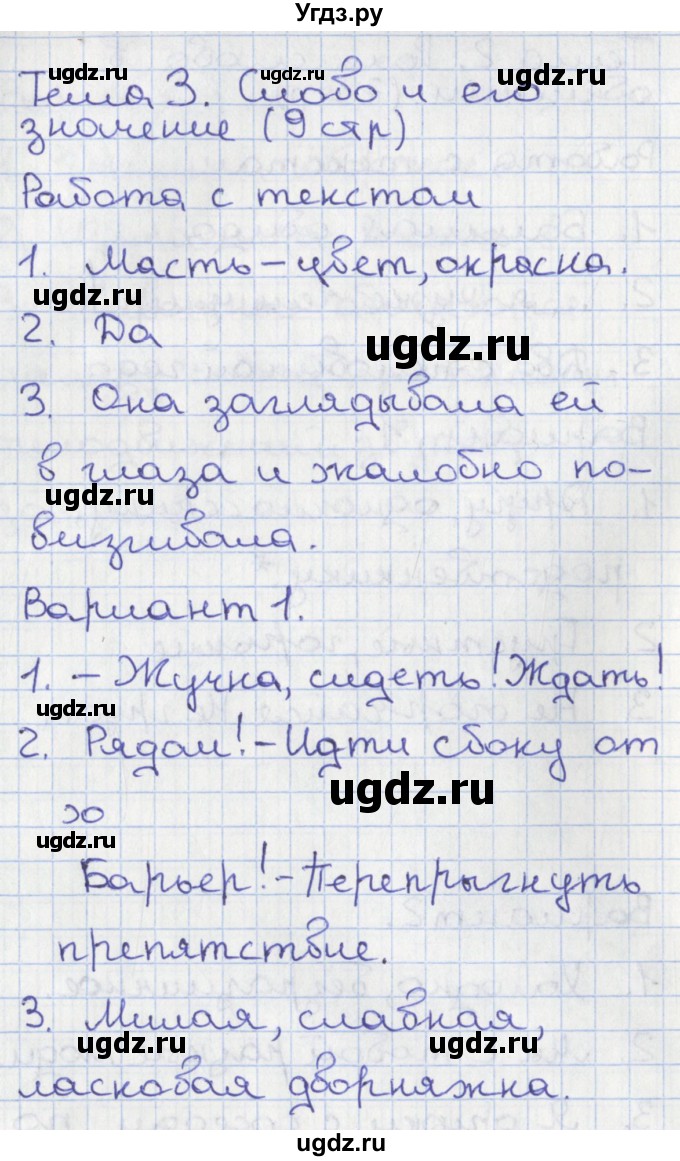 Угдз.ру
Тема 3. Слово и его
значение (9 стр)
Работа с текстом
1. Масть – цвет, окраска.
2. Да
3. Она заглядывала ей
в глаза и жалобно по-
визгивала.
Вариант 1.
1. – Жучка, сидеть! Ждать!
2. Рядом! – Идти сбоку от
хо
Барьер! – Перепрыгнуть
препятствие.
3. Милая, славная,
ласковая дворняжка.
ugdz.ru
ugdz.ru
ugdz.ru
ugdz.ru
ugdz.ru
ugdz.ru
ugdz.ru
ugdz.ru
ugdz.ru
ugdz.ru
ugdz.ru
ugdz.ru
ugdz.ru